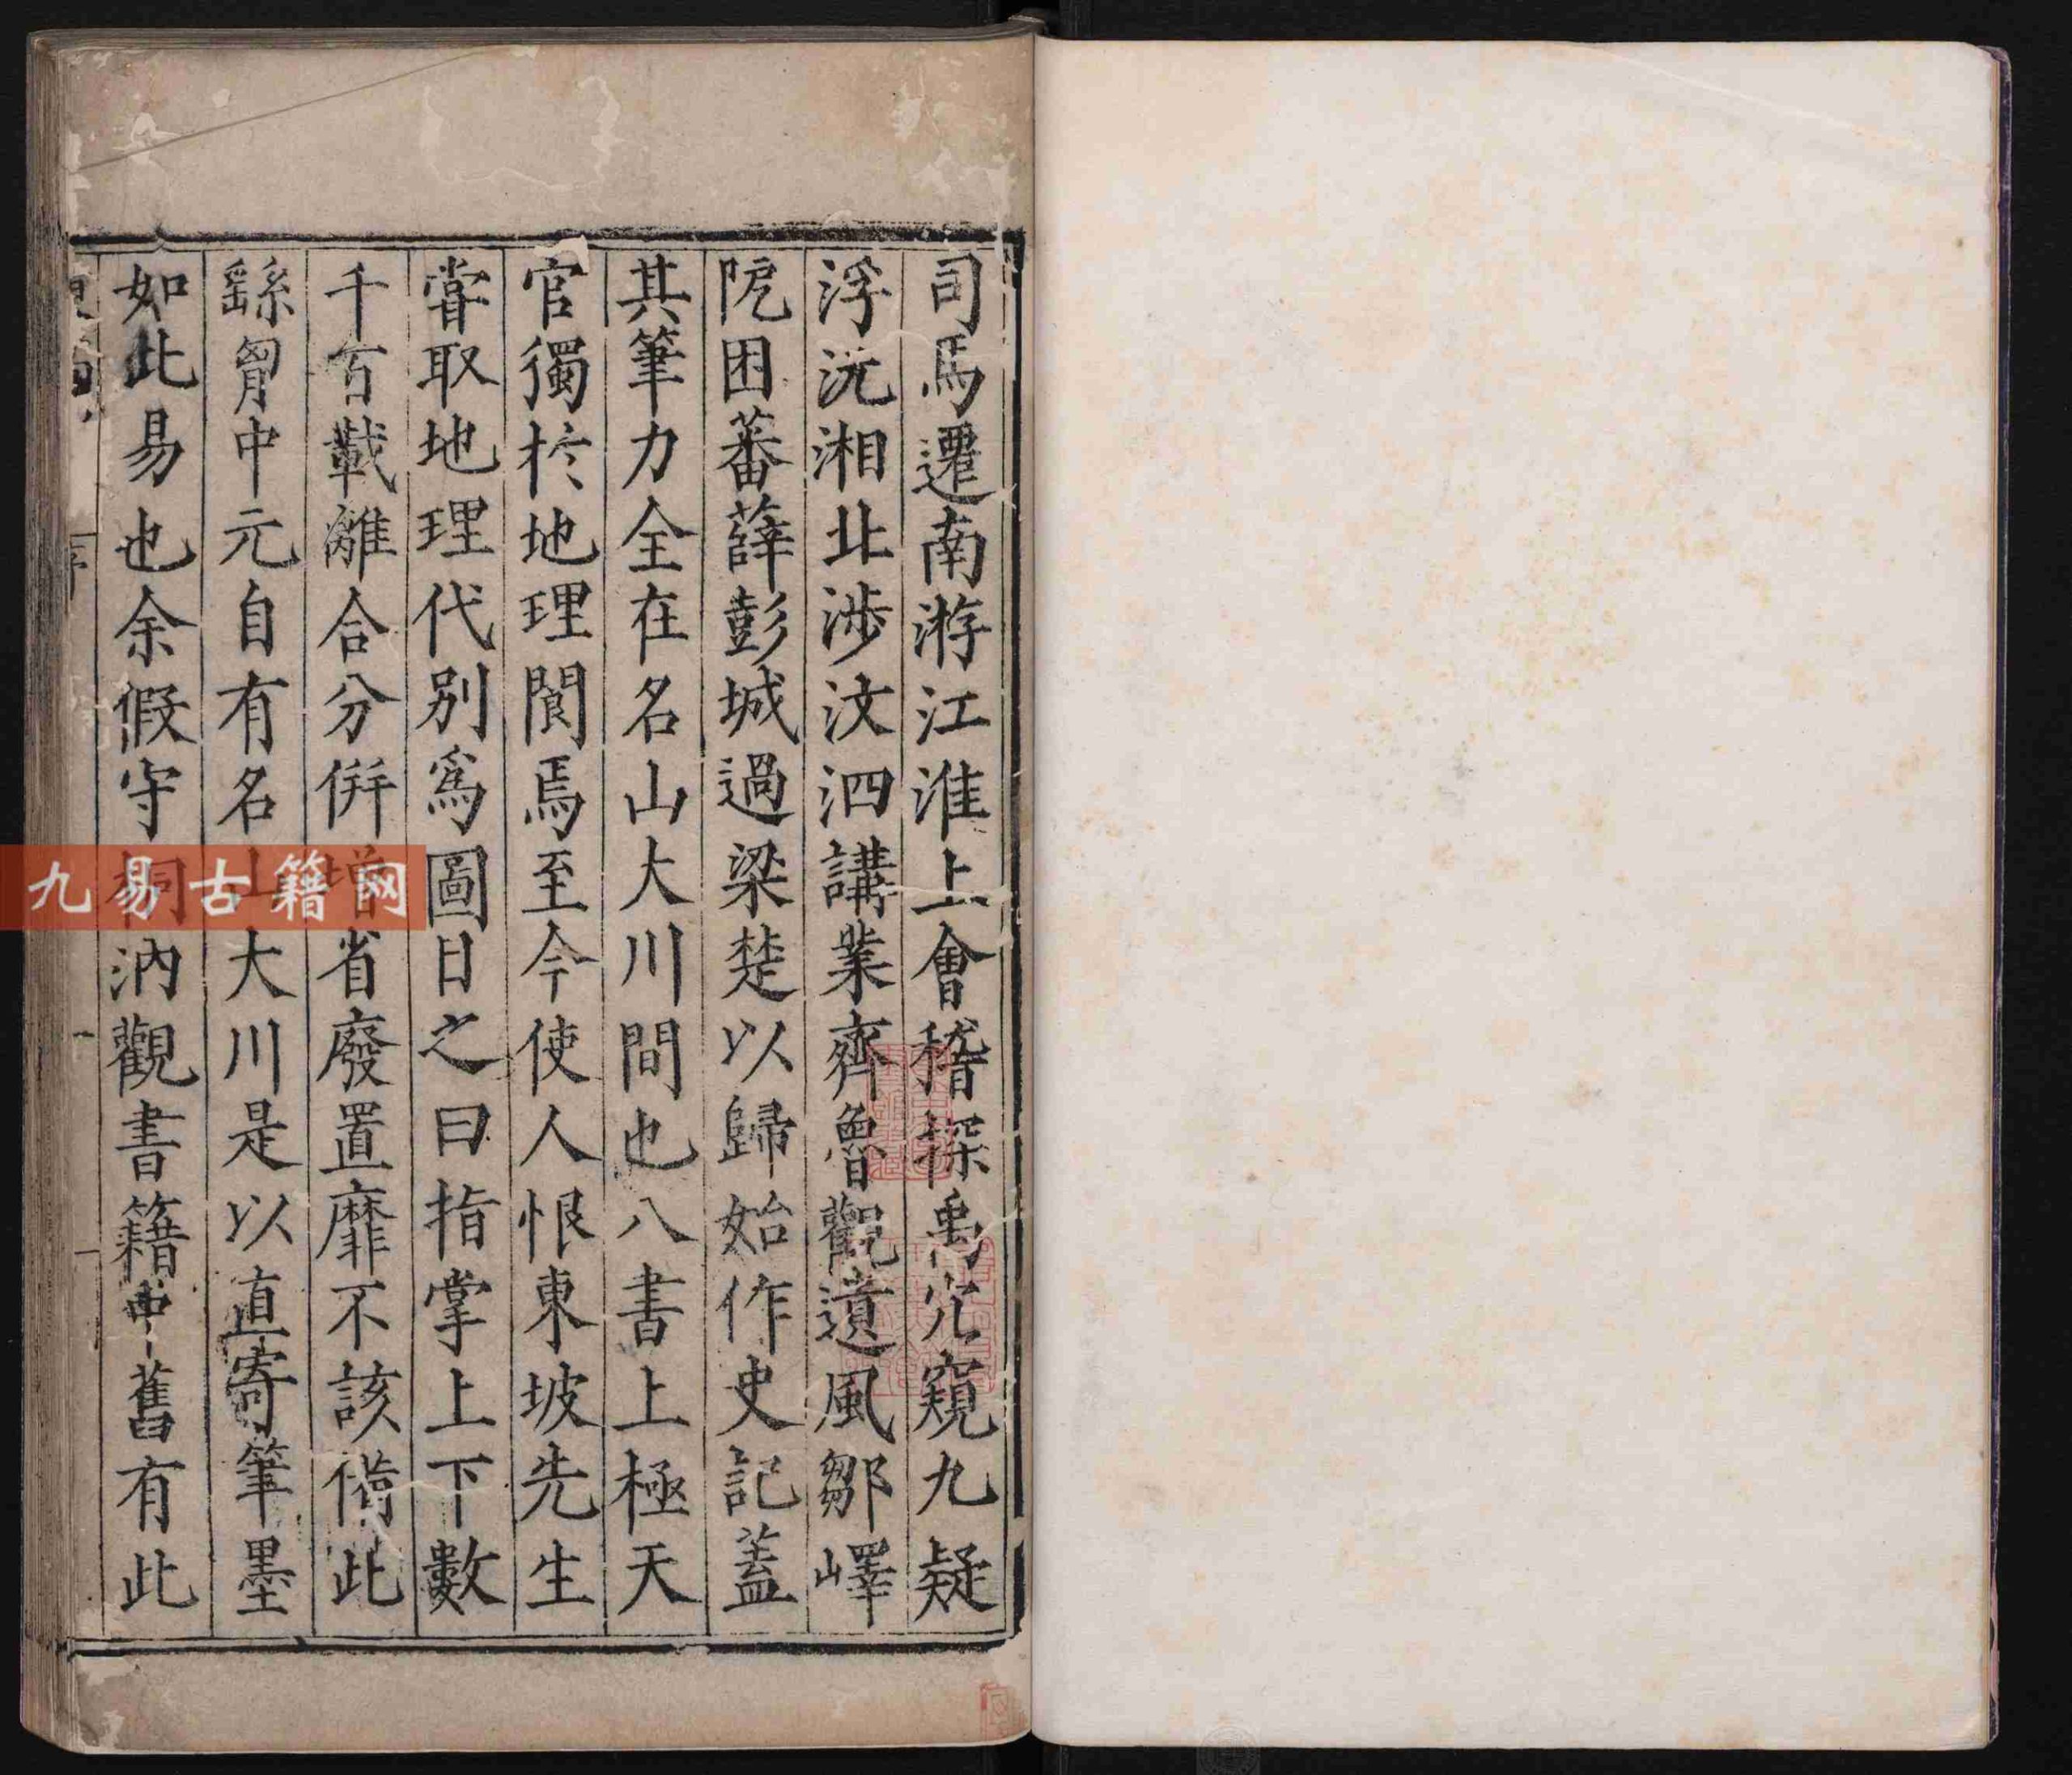 司馬遷南游江淮上會稽探禹穴窺九疑
浮沅湘北涉汶泗講業齊魯觀遺風鄒嶧
阸困蕃薛彭城過梁楚以歸始作史記蓋
其筆力全在名山大川間也八書上極天
官獨於地理闕焉至今使人恨東坡先生
甞取地理代別爲圖目之曰指掌上下數
千百載離合分併增省廢置靡不該備此
繇胷中元自有名山大川是以直寄筆墨
如此易也余假守桐汭觀書籍中舊有此
九易古籍网